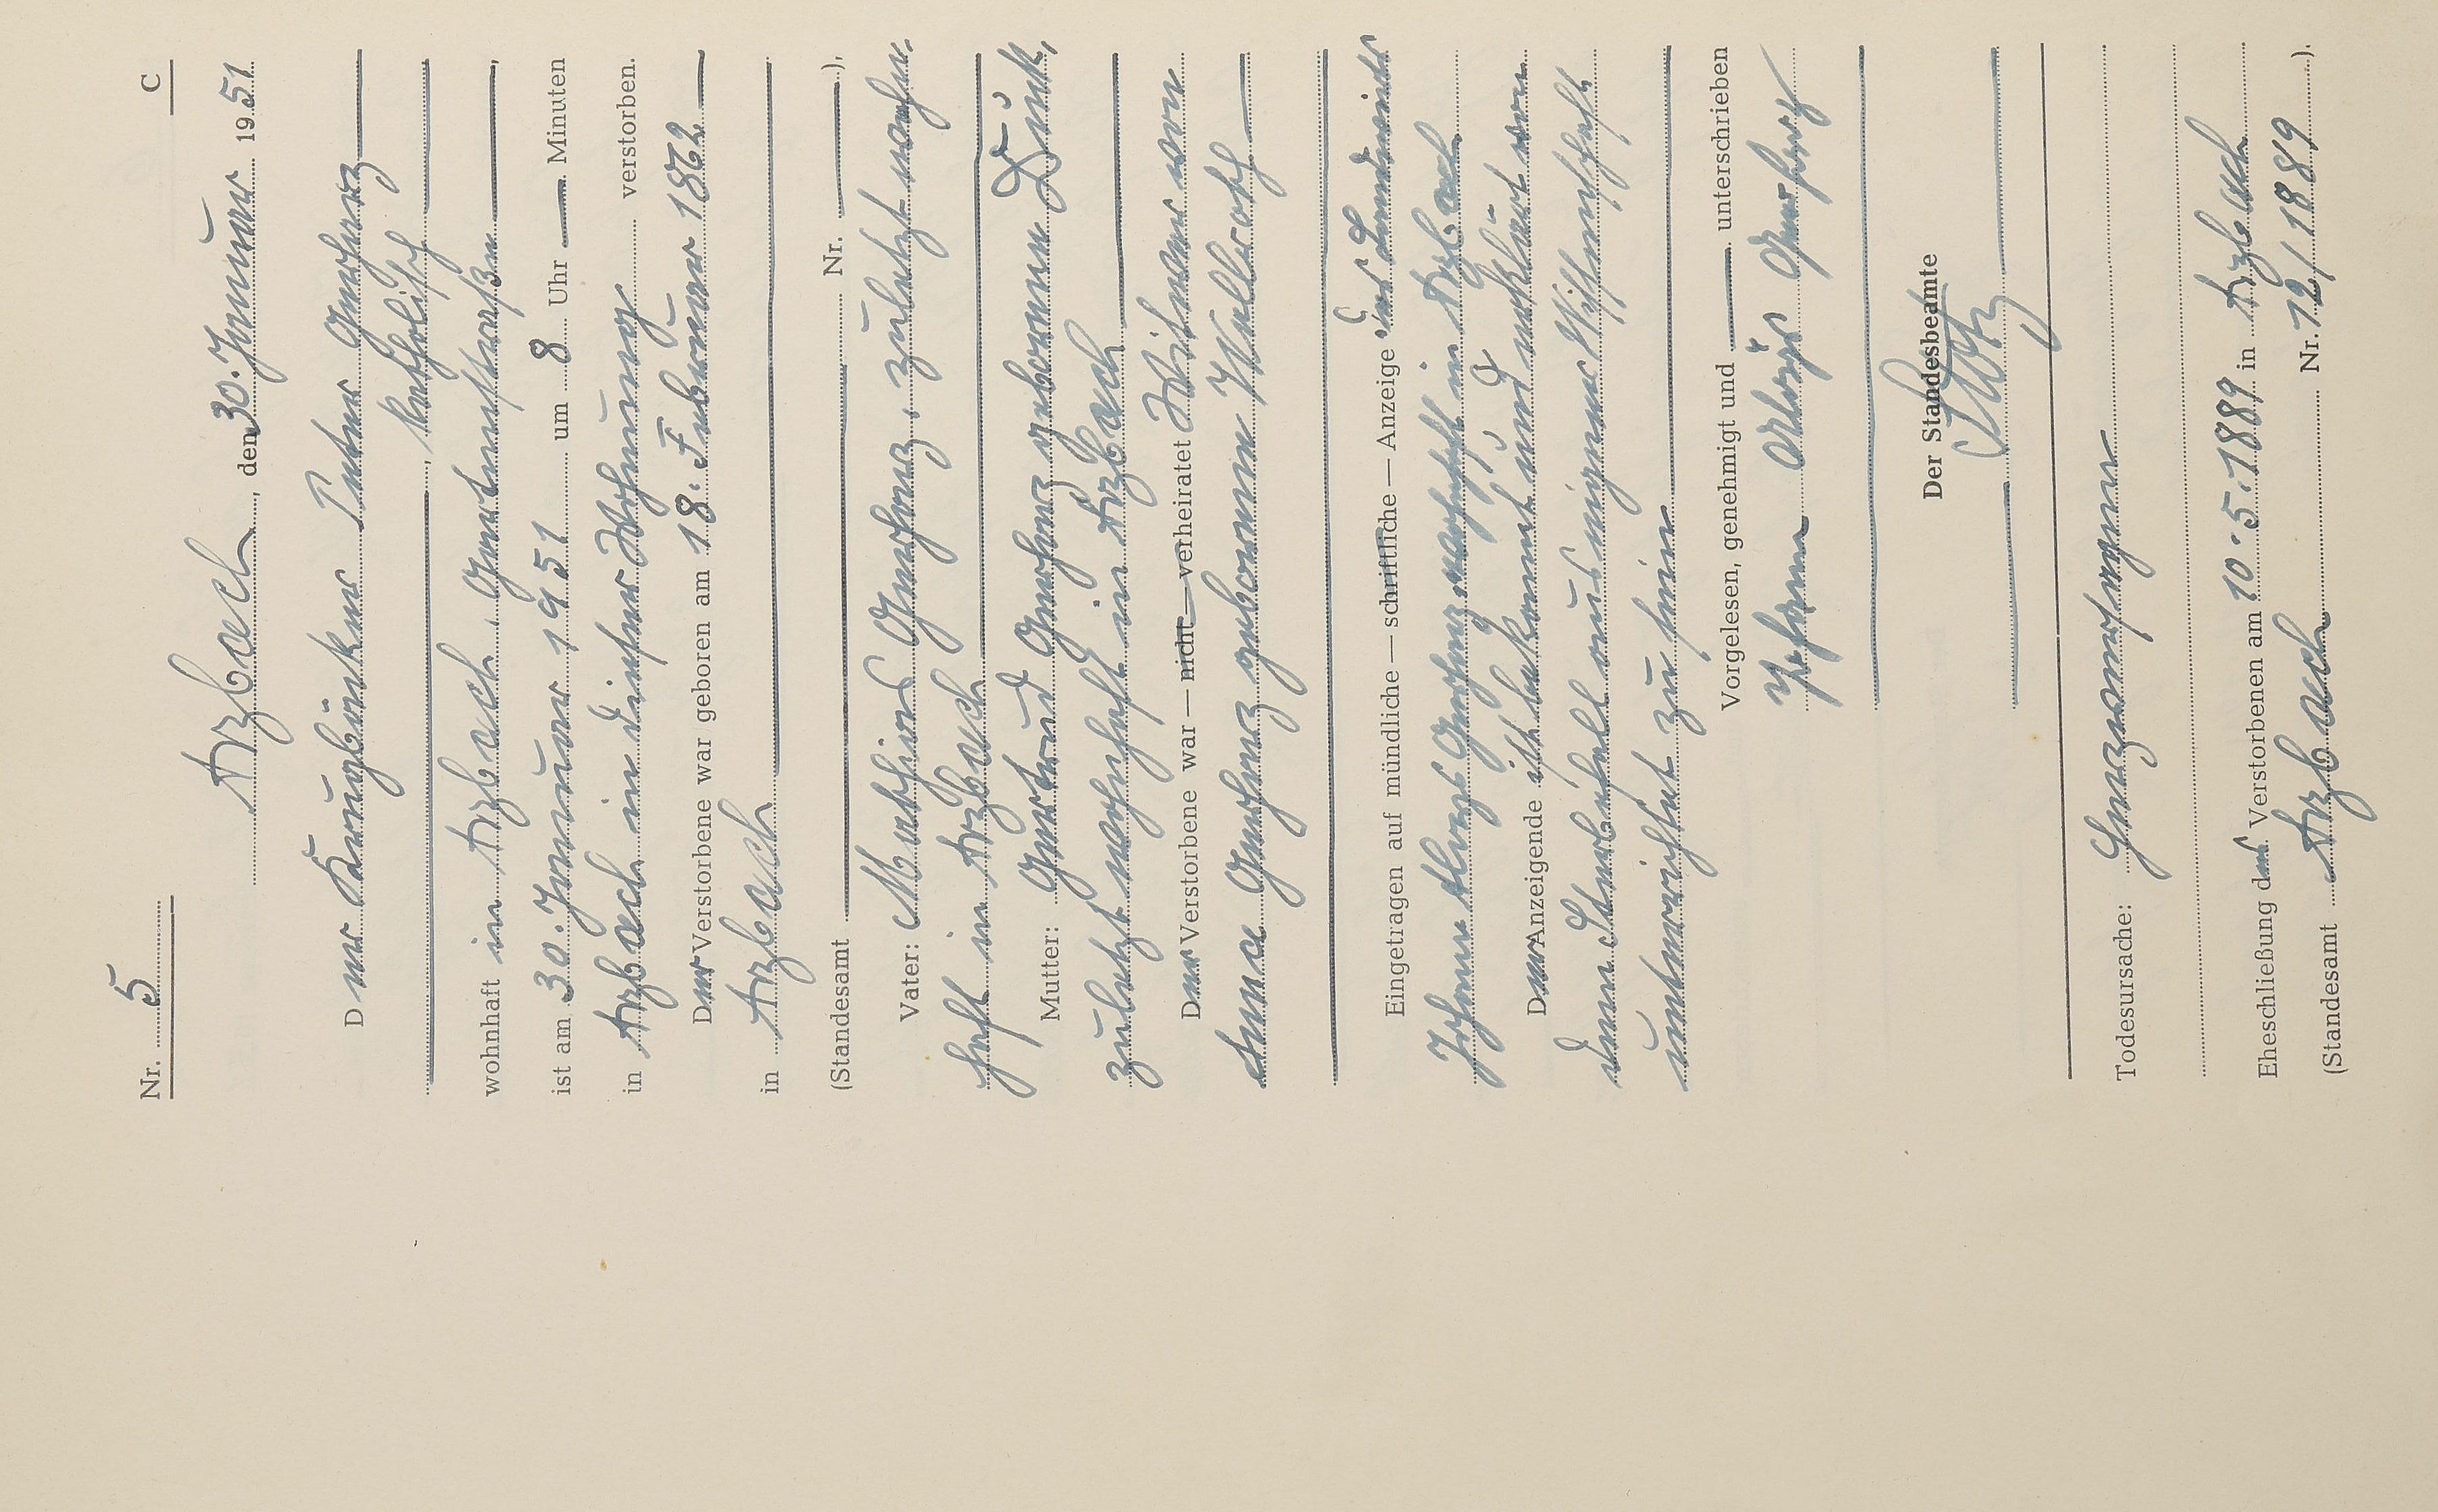 Nr. 5 C
Arzbach, den 30. Januar 1951
Der Krugbäcker Peter Gerharz
, katholisch
wohnhaft in Arzbach, Gartenstraße,
ist am 30. Januar 1951 um 8 Uhr — Minuten
in Arzbach in dieser Wohnung verstorben.
Der Verstorbene war geboren am 18. Februar 1862
in Arzbach
(Standesamt Nr. ),
Vater: Mathias Gerharz, zuletzt wohn-
haft in Arzbach
Mutter: Gertrud Gerharz geborene Dünk,
zuletzt wohnhaft in Arzbach
Der Verstorbene war — nicht — verheiratet Witwer von
Anna Gerharz geborene Wallroth
Eingetragen auf mündliche — schriftliche — Anzeige des Landwirts
Johann Gerharz wohnhaft in Arzbach
Der Anzeigende ist bekannt und erklärt von
dem Sterbefall aus eigener Wissenschaft
unterrichtet zu sein
Vorgelesen, genehmigt und — unterschrieben
Johann Alois Gerharz
Der Standesbeamte
Todesursache:
Eheschließung des Verstorbenen am 10.5.1889 in Arzbach
(Standesamt Arzbach Nr. 12/1889 ).